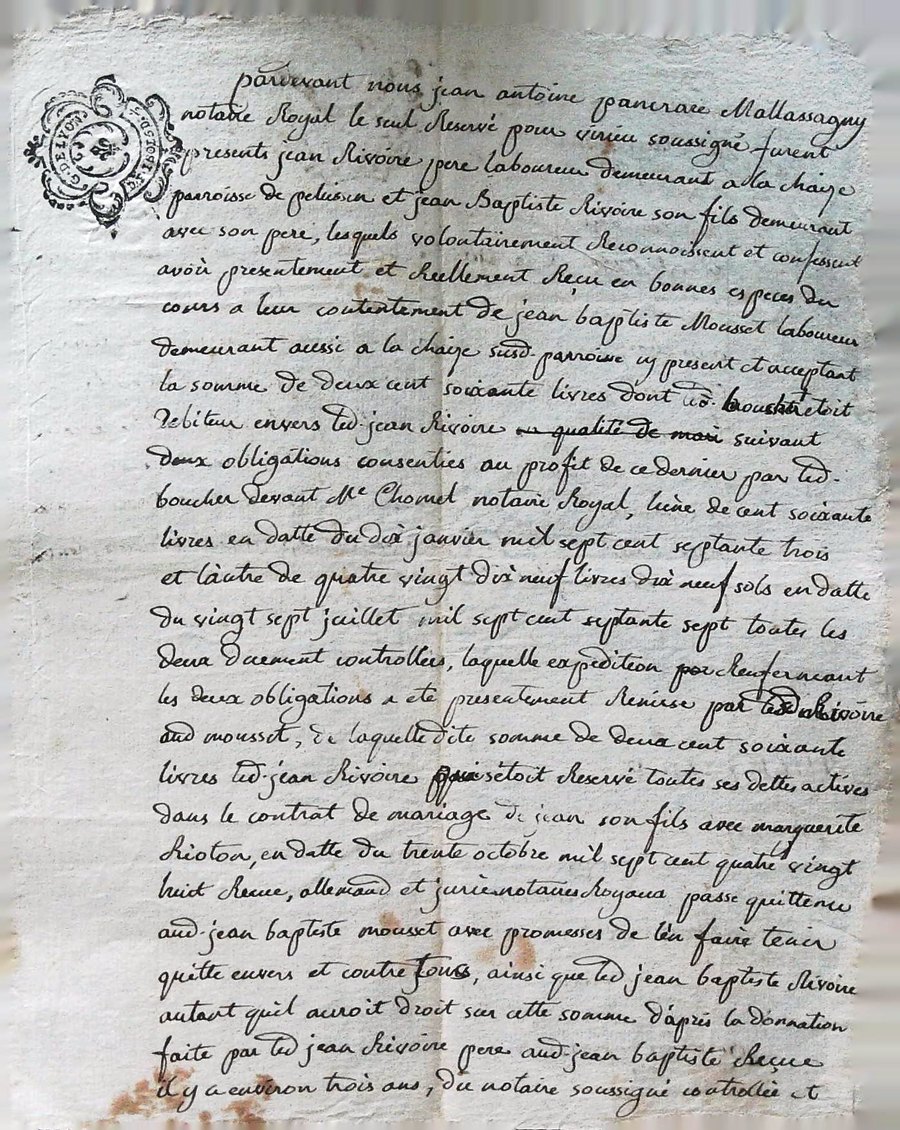 G. DE LYON
pardevant nous jean antoine pancrace Mallassagny
notaire Royal le seul Reservé pour virieu soussigné furent
presents jean Rivoire pere laboureur demeurant a la chaize
parroisse de pelussin et jean Baptiste Rivoire son fils demeurant
avec son pere, lesquels volontairement Reconnoissent et confessent
avoir presentement et Reellement Reçu en bonnes especes du
cours a leur contentement de jean baptiste Mousset laboureur
demeurant aussi a la chaize susd. parroisse icy present et acceptant
la somme de deux cent soixante livres dont led. boucher etoit
debiteur envers led. jean Rivoire en qualité de mari suivant
deux obligations consenties au profit de ce dernier par led.
boucher devant Me Chomel notaire Royal, lune de cent soixante
livres en datte du dix janvier mil sept cent septante trois
et làutre de quatre vingt dix neuf livres dix neuf sols en datte
du vingt sept juillet mil sept cent septante sept toutes les
deux duement controllées, laquelle expedition por Renfermant
les deux obligations a eté presentement Remise par led. Rivoire
aud mousset, de laquelle dite somme de deux cent soixante
livres led. jean Rivoire qui sétoit Reservé toutes ses dettes actives
dans le contrat de mariage de jean son fils avec marguerite
Rioton, en datte du trente octobre mil sept cent quatre vingt
huit Recue, allemand et jurie notaires Royaux passe quittence
aud. jean baptiste mousset avec promesses de lén faire tenir
quitte envers et contre tous, ainsi que led jean baptiste Rivoire
autant quil auroit droit sur cette somme dáprès la donnation
faite par led jean Rivoire pere aud. jean baptiste Reçue
il y a environ trois ans, du notaire soussigné controllée et